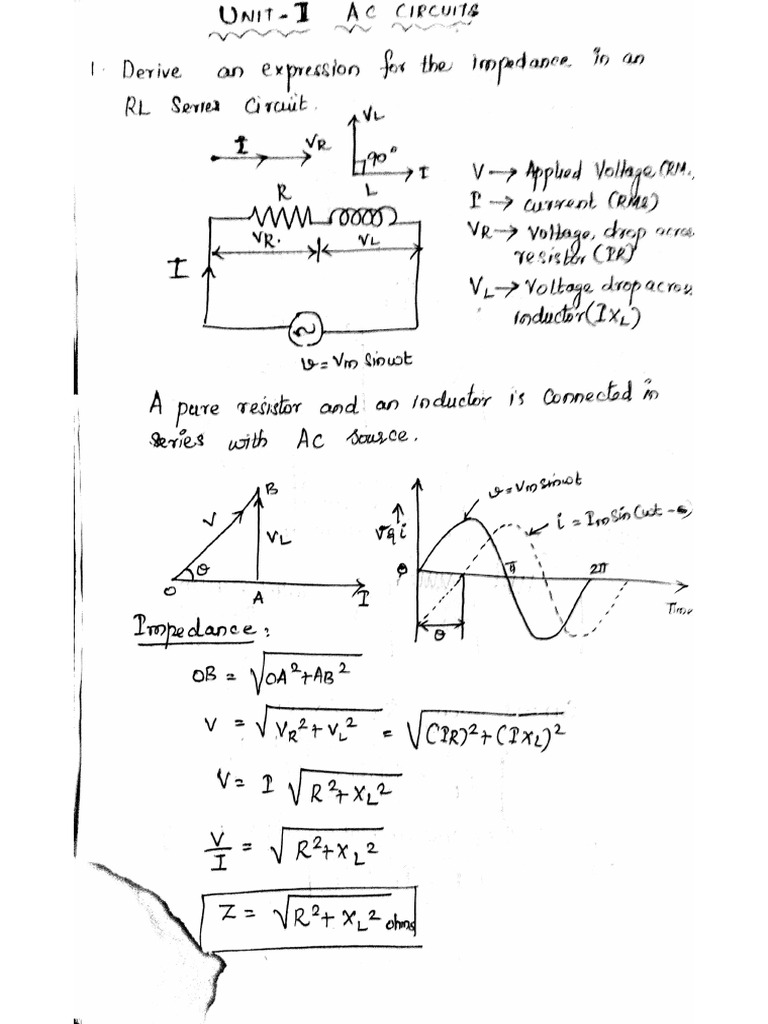 UNIT-I AC CIRCUITS
1. Derive an expression for the impedance in an
RL Series Circuit.
I VR
VL
90°
I
R L
VR. VL
I
v = Vm Sinωt
V → Applied Voltage (RM
I → current (RMS)
VR → Voltage, drop acros
resistor (IR)
VL → Voltage drop across
inductor (IXL)
A pure resistor and an inductor is connected in
series with AC source.
B
V
VL
θ
O A I
v = Vm sinωt
i = Im Sin(ωt-
V & i
π 2π
θ
Time
Impedance:
OB = √OA²+AB²
V = √VR²+VL² = √(IR)²+(IXL)²
V = I √R²+XL²
V/I = √R²+XL²
Z = √R²+XL² ohms